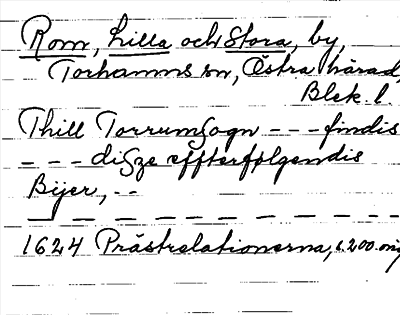 Rom, Lilla och Stora, by,
Torhamns sn, Östra härad,
Blek. l.
Thill Torrumsogn --- findis
--- disze effterfølgendis
Bijer, --
1624 Prästrelationerna, s. 200. orig